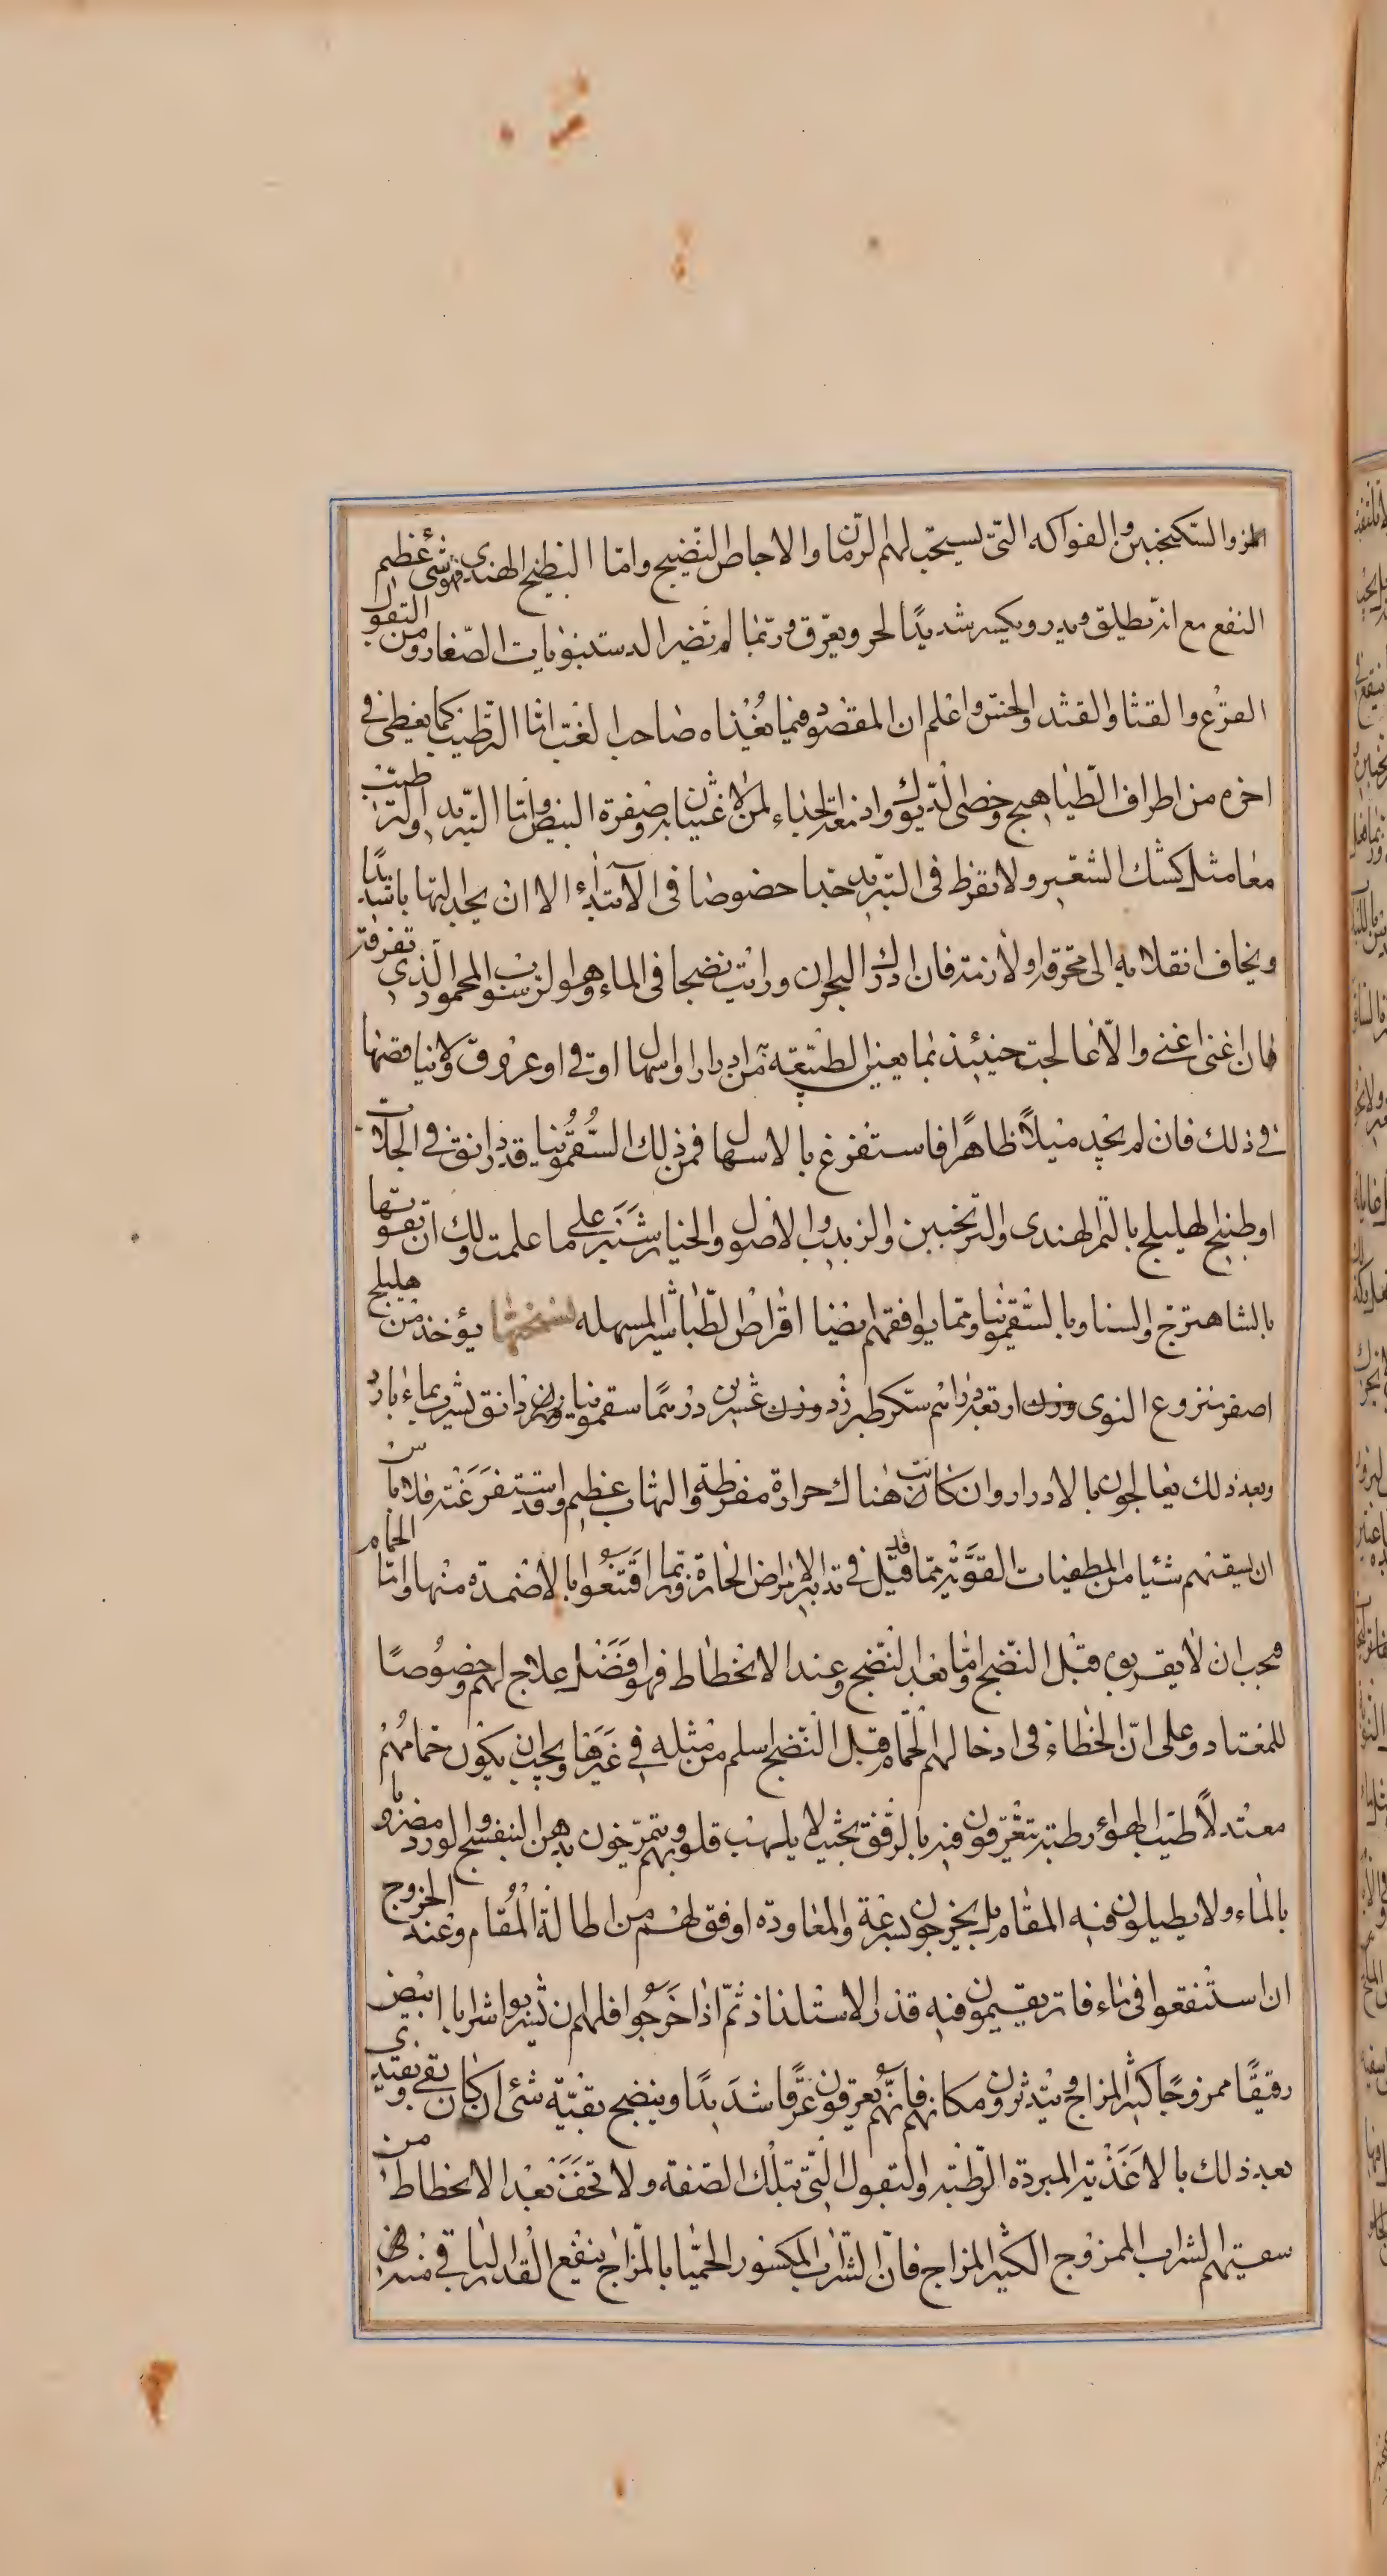 المز والسكنجبين والفواكه التى يستحب لهم الرمان والاجاص النضيج واما البطيخ الهندى فهو شئ عظيم
النفع مع انه يطلق ويدر ويكسر شديدًا لحر ويعرق وربما لم تضر الدستنبويات الصغار ومن البقول
القرع والقثا والقثد والخس واعلم ان المقصود فيما يغذاه صاحب الغب انما الترطيب كما يغطى فى
اخره من اطراف الطياهيج وخصى الديوك وادمغة الجداء لمن لا غثيان به وصفرة البيض واما التبريد والترطيب
معا مثل كشك الشعير ولا يفرط فى التبريد جدا خصوصا فى الابتداء الا ان يجد التهابا شديدًا
ويخاف انقلابه الى محرقة او لازمة فان ادرك البحران ورايت نضجا فى الماء وهو الرسوب المحمود الذى تعرفه
فان اغنى اغنى والا عالجت حينئذ بما يعين الطبيعة من ادرار او اسهال او قى او عرق ولا يناقضها
فى ذلك فان لم يجد ميلاً ظاهرًا فاستفرغ بالاسهال فمن ذلك السقمونيا قدر دانق فى الجلاب
او طبيخ الهليلج بالتمر الهندى والترنجبين والزبيب والاصول والخيار شنبر على ما علمت ولك ان تقويها
بالشاهترج والسنا وبالسقمونيا ومما يوافقهم ايضا اقراص الطباشير المسهله نسختها يؤخذ من هليلج
اصفر منزوع النوى وزن اربعة دراهم سكر طبرزد وزن عشرين درهما سقمونيا وزن دانق يشرب بماء بارد
وبعد ذلك يعالجون بالادرار وان كانت هناك حرارة مفرطة والتهاب عظيم وقد استفرغته فلا باس
ان يسقيهم شيئا من المطفيات القوية مما قيل فى تدابير الامراض الحارة وربما اقتنعوا بالاضمده منها واما الحمام
فيجب ان لا يقربوه قبل النضج واما بعد النضج وعند الانحطاط فهو افضل علاج لهم وخصوصًا
للمعتاد وعلى ان الخطاء فى ادخالهم الحمام قبل النضج اسلم من مثله فى غيرها ويجب ان يكون حمامهم
معتدلاً طيب الهواء رطبه يتعرقون فيه بالرفق بحيث لا يلهب قلوبهم ويتمرخون بدهن البنفسج والورد مضروبا
بالماء ولا يطيلون فيه المقام بل يخرجون بسرعة والمعاودة اوفق لهم من اطالة المقام وعند الخروج
ان استنقعوا فى ماء فاتر يقيمون فيه قدر الاستلذاذ ثم اذا خرجوا فلهم ان يشربوا شرابا ابيض
رقيقًا ممزوجًا كثير المزاج ويتدثرون مكانهم فانهم يعرقون عرقًا شديدًا وينضج بقية شئ ان كان بقى ويغتدى
بعد ذلك بالاغذية المبردة الرطبة والبقول التى بتلك الصفة ولا تخف بعد الانحطاط من
سقيهم الشراب الممزوج الكثير المزاج فان الشراب المكسور الحميا بالمزاج ينفع القدر الباقى منه فى